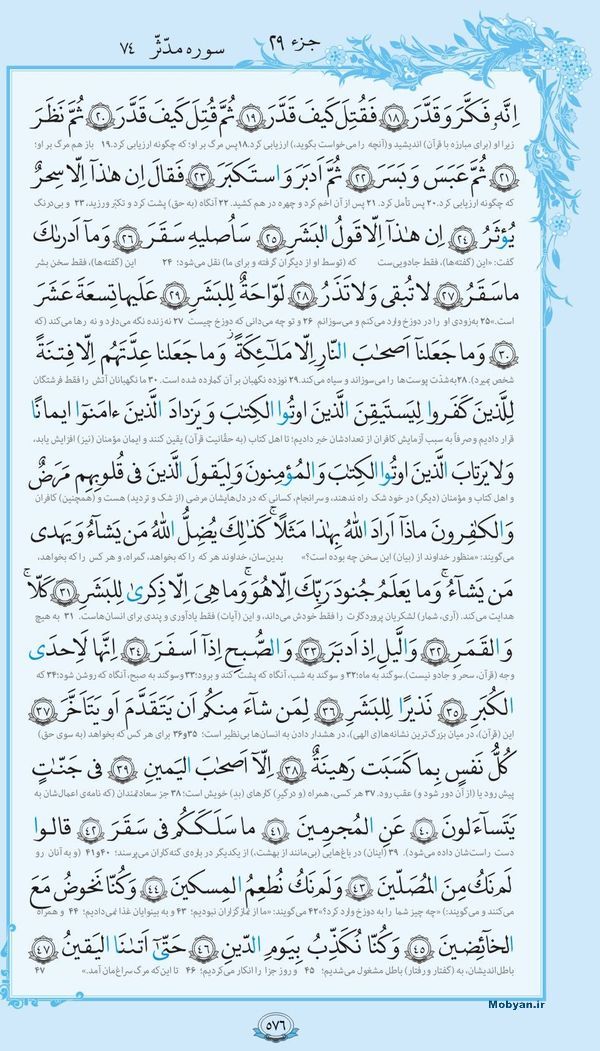 جزء ۲۹ سوره مدّثّر ۷۴
اِنَّهُ فَكَّرَ وَ قَدَّرَ ۱۸ فَقُتِلَ كَيفَ قَدَّرَ ۱۹ ثُمَّ قُتِلَ كَيفَ قَدَّرَ ۲۰ ثُمَّ نَظَرَ
زیرا او (برای مبارزه با قرآن) اندیشید و (آنچه را می‌خواست بگوید،) ارزیابی کرد.۱۸ پس مرگ بر او؛ که چگونه ارزیابی کرد. ۱۹ باز هم مرگ بر او؛
۲۱ ثُمَّ عَبَسَ وَ بَسَرَ ۲۲ ثُمَّ اَدبَرَ وَ استَكبَرَ ۲۳ فَقالَ اِن هٰذا اِلّا سِحرٌ
که چگونه ارزیابی کرد. ۲۰ پس تأمل کرد. ۲۱ پس از آن اخم کرد و چهره در هم کشید. ۲۲ آنگاه (به حق) پشت کرد و تکبّر ورزید، ۲۳ و بی‌درنگ
يُؤثَرُ ۲۴ اِن هٰذا اِلّا قَولُ البَشَرِ ۲۵ سَاُصليهِ سَقَرَ ۲۶ وَ ما اَدراكَ
گفت: «این (گفته‌ها)، فقط جادویی‌ست که (توسط او از دیگران گرفته و برای ما) نقل می‌شود؛ ۲۴ این (گفته‌ها)، فقط سخن بشر
ما سَقَرُ ۲۷ لا تُبقى وَ لا تَذَرُ ۲۸ لَوّاحَةٌ لِلبَشَرِ ۲۹ عَلَيها تِسعَةَ عَشَرَ
است.» ۲۵ به‌زودی او را در دوزخ وارد می‌کنم و می‌سوزانم ۲۶ و تو چه می‌دانی که دوزخ چیست ۲۷ نه زنده نگه می‌دارد و نه رها می‌کند (که
۳۰ وَ ما جَعَلنا اَصحابَ النّارِ اِلّا مَلائِكَةً وَ ما جَعَلنا عِدَّتَهُم اِلّا فِتنَةً
شخص بمیرد). ۲۸ به‌شدّت پوست‌ها را می‌سوزاند و سیاه می‌کند. ۲۹ نوزده نگهبان بر آن گمارده شده است. ۳۰ ما نگهبانان آتش را فقط فرشتگان
لِلَّذينَ كَفَروا لِيَستَيقِنَ الَّذينَ اوتُوا الكِتابَ وَ يَزدادَ الَّذينَ ءامَنوا ايمانًا
قرار دادیم و صرفاً به سبب آزمایش کافران از تعدادشان خبر دادیم؛ تا اهل کتاب (به حقّانیت قرآن) یقین کنند و ایمان مؤمنان (نیز) افزایش یابد،
وَ لا يَرتابَ الَّذينَ اوتُوا الكِتابَ وَ المُؤمِنونَ وَ لِيَقولَ الَّذينَ فى قُلوبِهِم مَرَضٌ
و اهل کتاب و مؤمنان (دیگر) در خود شک راه ندهند، و سرانجام، کسانی که در دل‌هایشان مرضی (از شک و تردید) هست و (همچنین) کافران
وَ الكافِرونَ ماذا اَرادَ اللهُ بِهٰذا مَثَلًا كَذٰلِكَ يُضِلُّ اللهُ مَن يَشاءُ وَ يَهدى
می‌گویند: «منظور خداوند از (بیان) این سخن چه بوده است؟» بدین‌سان، خداوند هر که را که بخواهد، گمراه، و هر کس را که بخواهد،
مَن يَشاءُ وَ ما يَعلَمُ جُنودَ رَبِّكَ اِلّا هُوَ وَ ما هِىَ اِلّا ذِكرىٰ لِلبَشَرِ ۳۱ كَلّا
هدایت می‌کند. (آری، شمار) لشکریان پروردگارت را فقط خودش می‌داند، و این (آیات) فقط یادآوری و پندی برای انسان‌هاست. ۳۱ به هیچ
وَ القَمَرِ ۳۲ وَ الَّيلِ اِذ اَدبَرَ ۳۳ وَ الصُّبحِ اِذا اَسفَرَ ۳۴ اِنَّها لَاِحدَى
وجه (قرآن، سحر و جادو نیست). سوگند به ماه؛ ۳۲ و سوگند به شب، آنگاه که پشت کند و برود؛ ۳۳ و سوگند به صبح، آنگاه که روشن شود؛ ۳۴ که
الكُبَرِ ۳۵ نَذيرًا لِلبَشَرِ ۳۶ لِمَن شاءَ مِنكُم اَن يَتَقَدَّمَ اَو يَتَاَخَّرَ ۳۷
این (قرآن)، در میان بزرگ‌ترین نشانه‌ها(ی الهی)، در هشدار دادن به انسان‌ها بی‌نظیر است؛ ۳۵ و ۳۶ برای هر کس که بخواهد (به سوی حق)
كُلُّ نَفسٍ بِما كَسَبَت رَهينَةٌ ۳۸ اِلّا اَصحابَ اليَمينِ ۳۹ فى جَنّاتٍ
پیش رود یا (از آن دور شود و) عقب رود. ۳۷ هر کسی، همراه (و درگیرِ) کارهای (بدِ) خویش است؛ ۳۸ جز سعادتمندان (که نامه‌ی اعمال‌شان به
يَتَساءَلونَ ۴۰ عَنِ المُجرِمينَ ۴۱ ما سَلَكَكُم فى سَقَرَ ۴۲ قالوا
دست راست‌شان داده می‌شود). ۳۹ (اینان) در باغ‌هایی (بی‌مانند از بهشت)، از یکدیگر در باره‌ی گنه‌کاران می‌پرسند؛ ۴۰ و ۴۱ (و به آنان رو
لَم نَكُ مِنَ المُصَلّينَ ۴۳ وَ لَم نَكُ نُطعِمُ المِسكينَ ۴۴ وَ كُنّا نَخوضُ مَعَ
می‌کنند و می‌گویند:) «چه چیز شما را به دوزخ وارد کرد؟» ۴۲ می‌گویند: «ما از نمازگزاران نبودیم؛ ۴۳ و به بینوایان غذا نمی‌دادیم؛ ۴۴ و همراه
الخائِضينَ ۴۵ وَ كُنّا نُكَذِّبُ بِيَومِ الدّينِ ۴۶ حَتّىٰ اَتانَا اليَقينُ ۴۷
باطل‌اندیشان، به (گفتار و رفتار) باطل مشغول می‌شدیم؛ ۴۵ و روز جزا را انکار می‌کردیم؛ ۴۶ تا این‌که مرگ سراغ‌مان آمد.» ۴۷
Mobyan.ir
۵۷۶